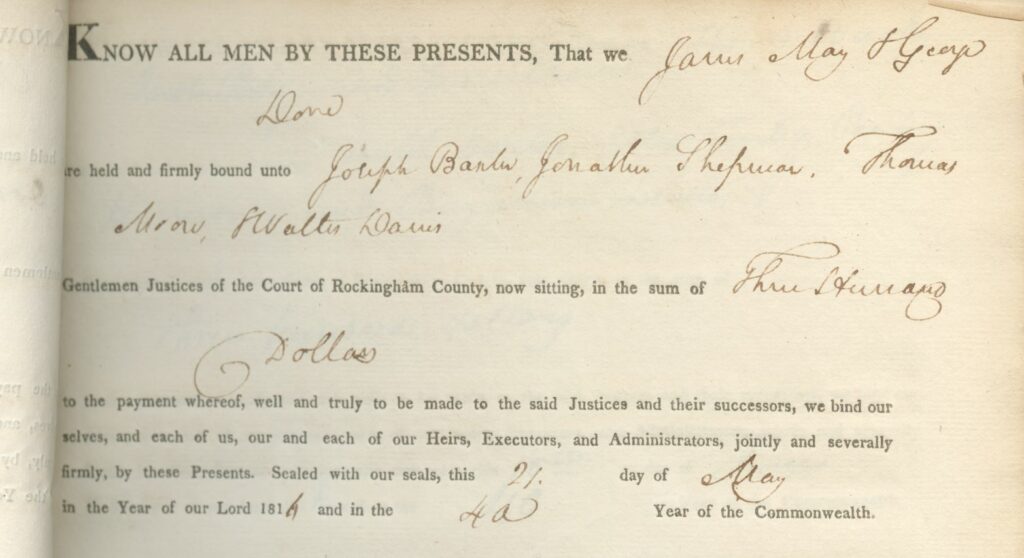 KNOW ALL MEN BY THESE PRESENTS, That we James May & George
Dove
are held and firmly bound unto Joseph Baxter, Jonathan Shipman, Thomas
Moore, & Walter Davis
Gentlemen Justices of the Court of Rockingham County, now sitting, in the sum of Three Hundred
Dollars
to the payment whereof, well and truly to be made to the said Justices and their successors, we bind our
selves, and each of us, our and each of our Heirs, Executors, and Administrators, jointly and severally
firmly, by these Presents. Sealed with our seals, this 21. day of May
in the Year of our Lord 1816 and in the 40 Year of the Commonwealth.